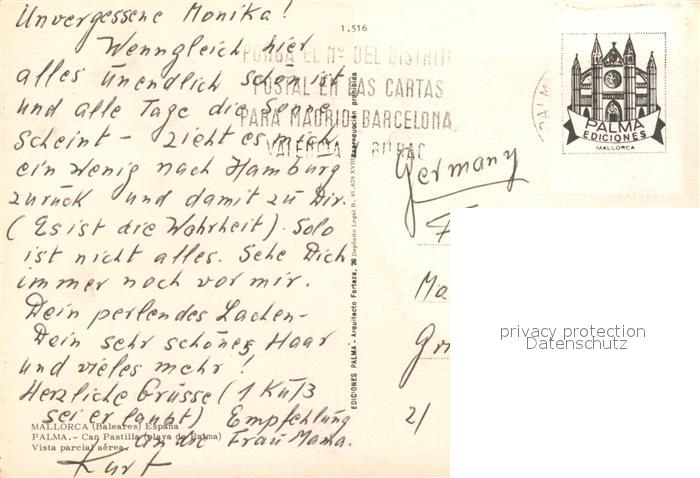 Unvergessene Monika!
Wenngleich hier
alles unendlich schön ist
und alle Tage die Sonne
scheint – zieht es mich
ein wenig nach Hamburg
zurück und damit zu Dir.
(Es ist die Wahrheit). Solo
ist nicht alles. Sehe Dich
immer noch vor mir.
Dein perlendes Lachen –
Dein sehr schönes Haar
und vieles mehr!
Herzliche Grüsse (1 Kuß
sei erlaubt) Empfehlung
an die Frau Mama.
Kurt
MALLORCA (Baleares) España
PALMA.– Can Pastilla (playa de Palma)
Vista parcial aérea.
1.516
PONGA EL Nº DEL DISTRITO
POSTAL EN LAS CARTAS
PARA MADRID, BARCELONA,
VALENCIA BILBAO
PALM
EDICIONES PALMA - Arquitecto Forteza, 20 Depósito Legal B. 41.629 XVIII Reproducción prohibida
PALMA
EDICIONES
MALLORCA
Germany
F
Mo
Gri
2/
privacy protection
Datenschutz